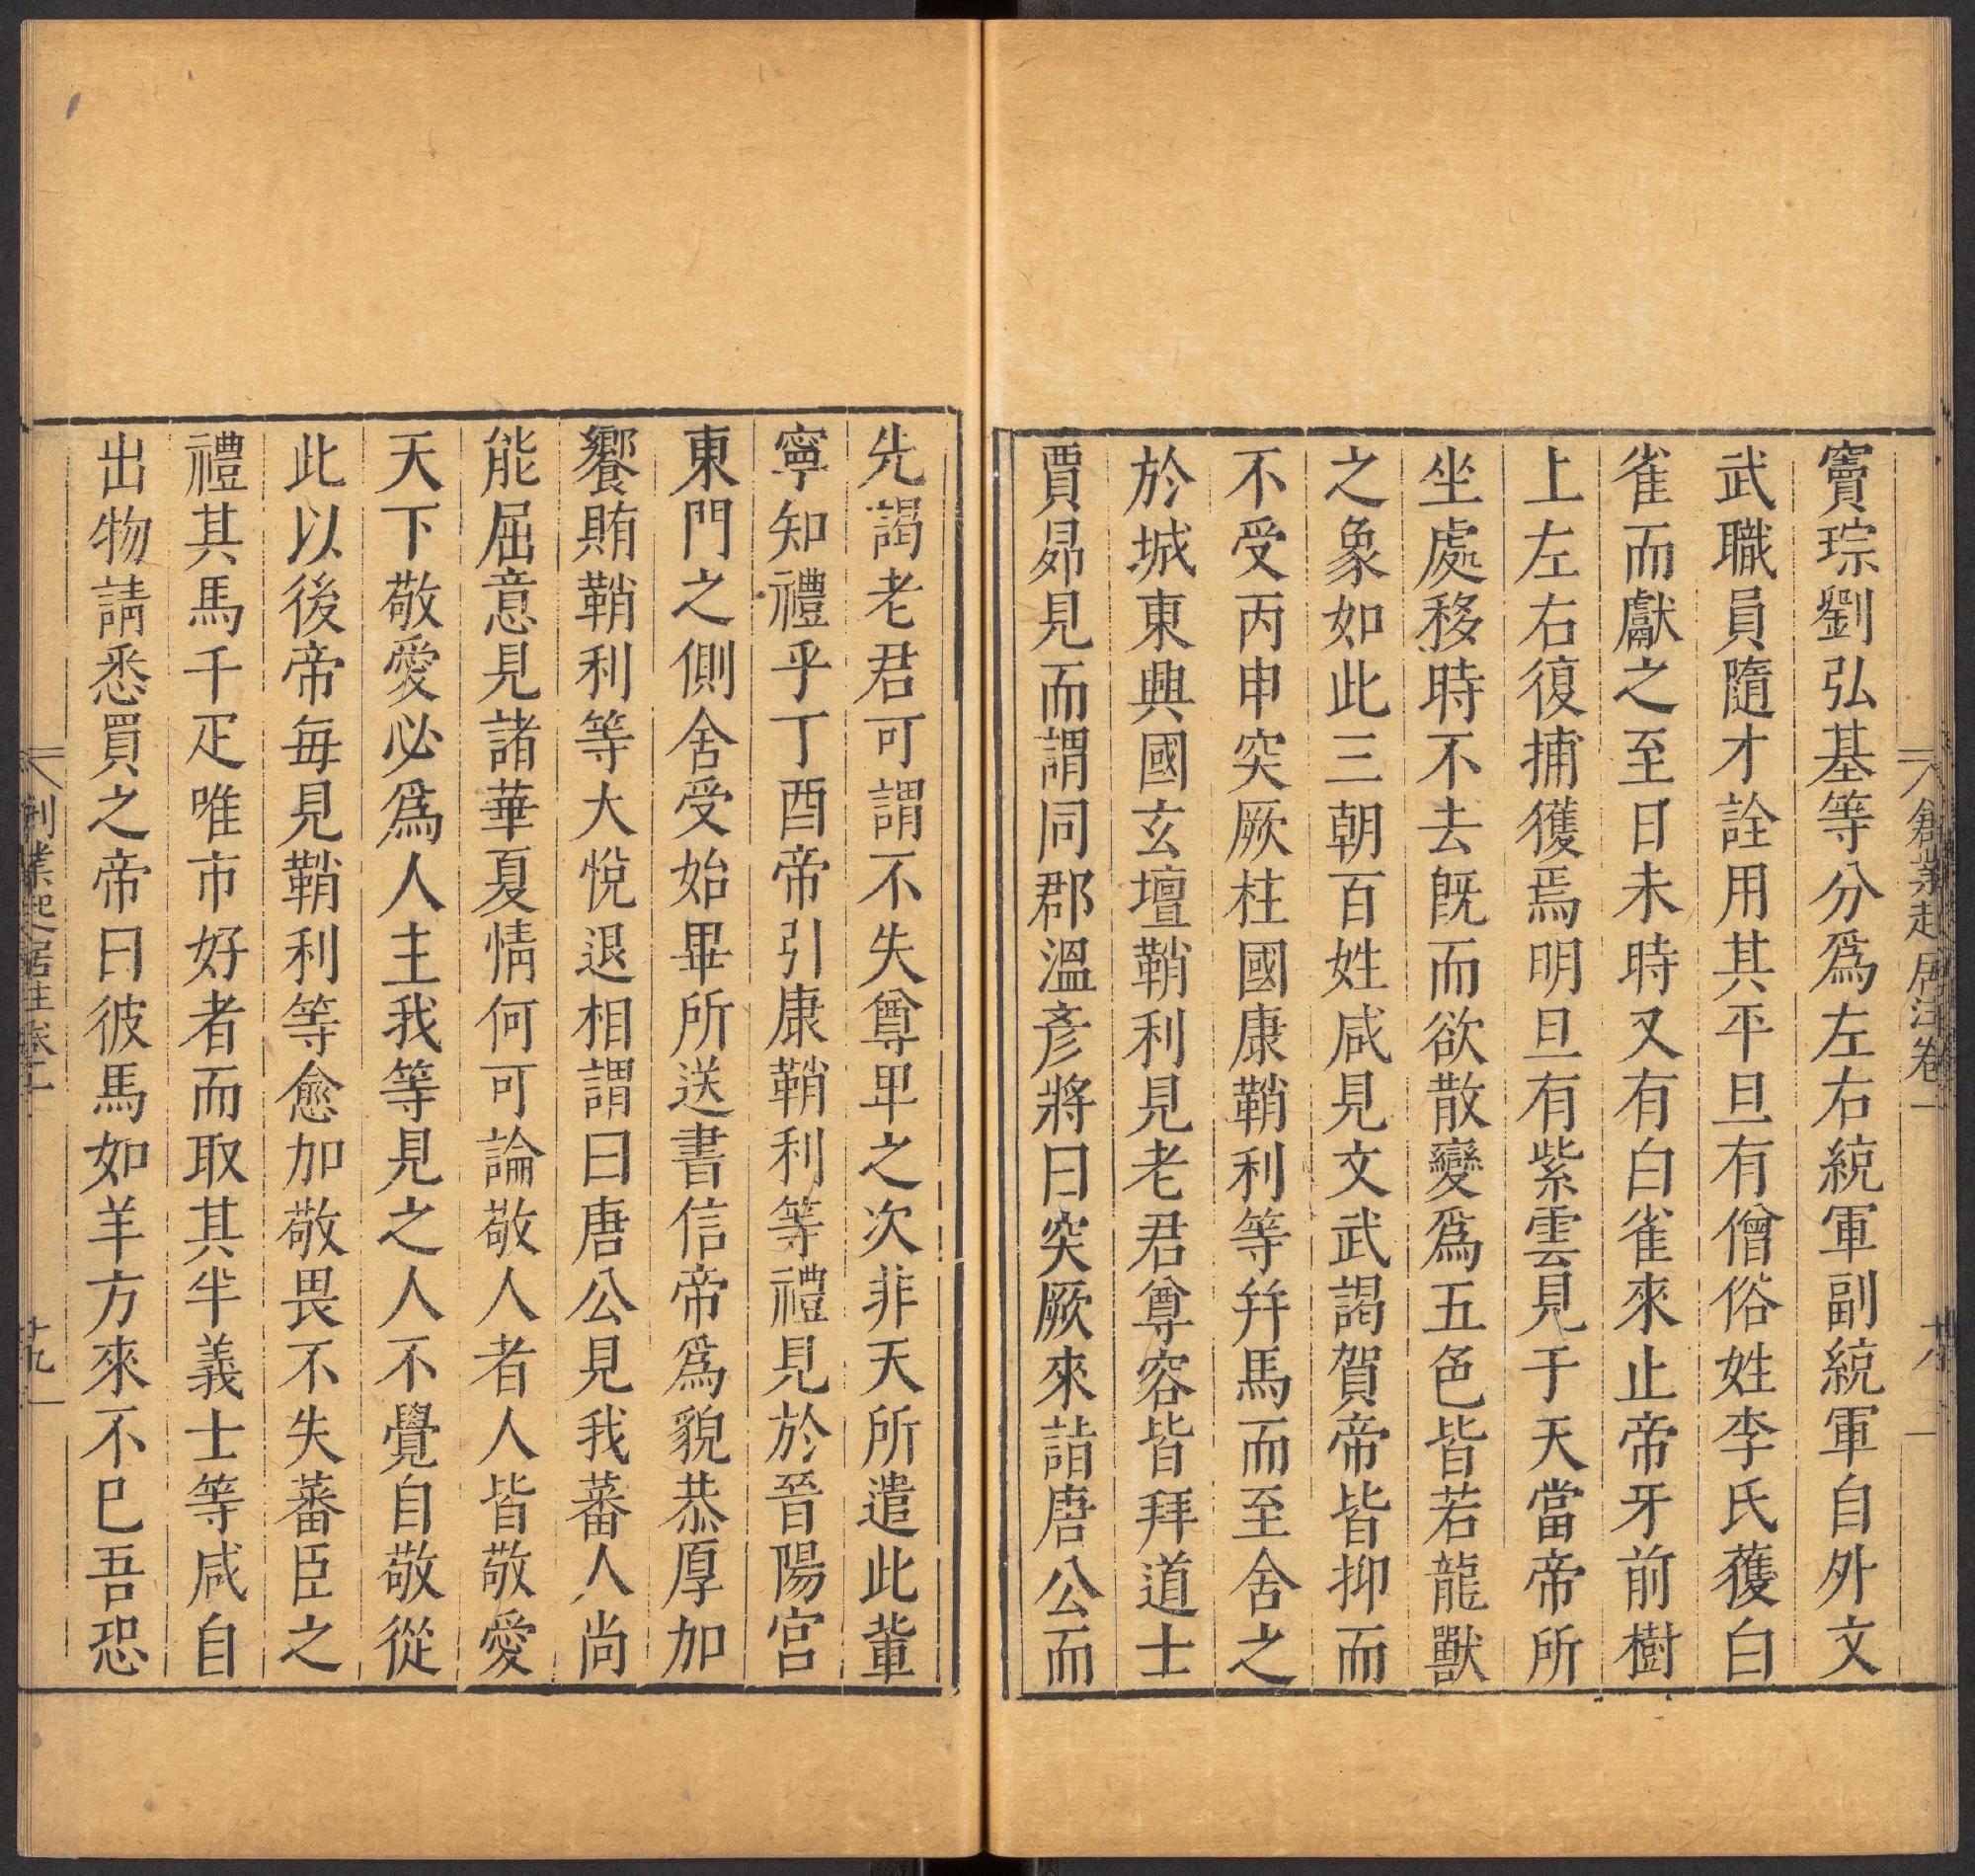 創業起居注卷一
十八
竇琮劉弘基等分爲左右統軍副統軍自外文
武職員隨才詮用其平旦有僧俗姓李氏獲白
雀而獻之至日未時又有白雀來止帝牙前樹
上左右復捕獲焉明旦有紫雲見于天當帝所
坐處移時不去旣而欲散變爲五色皆若龍獸
之象如此三朝百姓咸見文武謁賀帝皆抑而
不受丙申突厥柱國康鞘利等幷馬而至舍之
於城東興國玄壇鞘利見老君尊容皆拜道士
賈昴見而謂同郡溫彥將曰突厥來詣唐公而
先謁老君可謂不失尊卑之次非天所遣此輩
寧知禮乎丁酉帝引康鞘利等禮見於晉陽宮
東門之側舍受始畢所送書信帝爲貌恭厚加
饗賄鞘利等大悅退相謂曰唐公見我蕃人尚
能屈意見諸華夏情何可論敬人者人皆敬愛
天下敬愛必爲人主我等見之人不覺自敬從
此以後帝每見鞘利等愈加敬畏不失蕃臣之
禮其馬千疋唯市好者而取其半義士等咸自
出物請悉買之帝曰彼馬如羊方來不已吾恐
十九